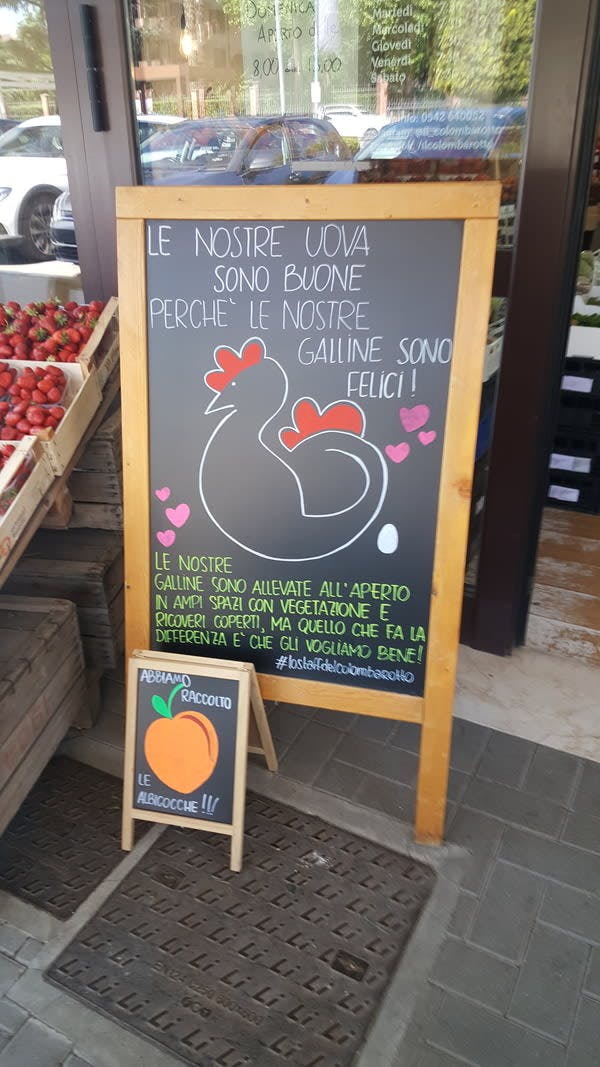 DOMENICA
APERTO
8,00
13,00
Martedì
Mercoledì
Giovedì
Venerdì
Sabato
0542 640052
@il_colombarotto
/ilcolombarotto
LE NOSTRE UOVA
SONO BUONE
PERCHE' LE NOSTRE
GALLINE SONO
FELICI!
LE NOSTRE
GALLINE SONO ALLEVATE ALL'APERTO
IN AMPI SPAZI CON VEGETAZIONE E
RICOVERI COPERTI, MA QUELLO CHE FA LA
DIFFERENZA E' CHE GLI VOGLIAMO BENE!
#lostaffdelcolombarotto
ABBIAMO
RACCOLTO
LE
ALBICOCCHE!!!